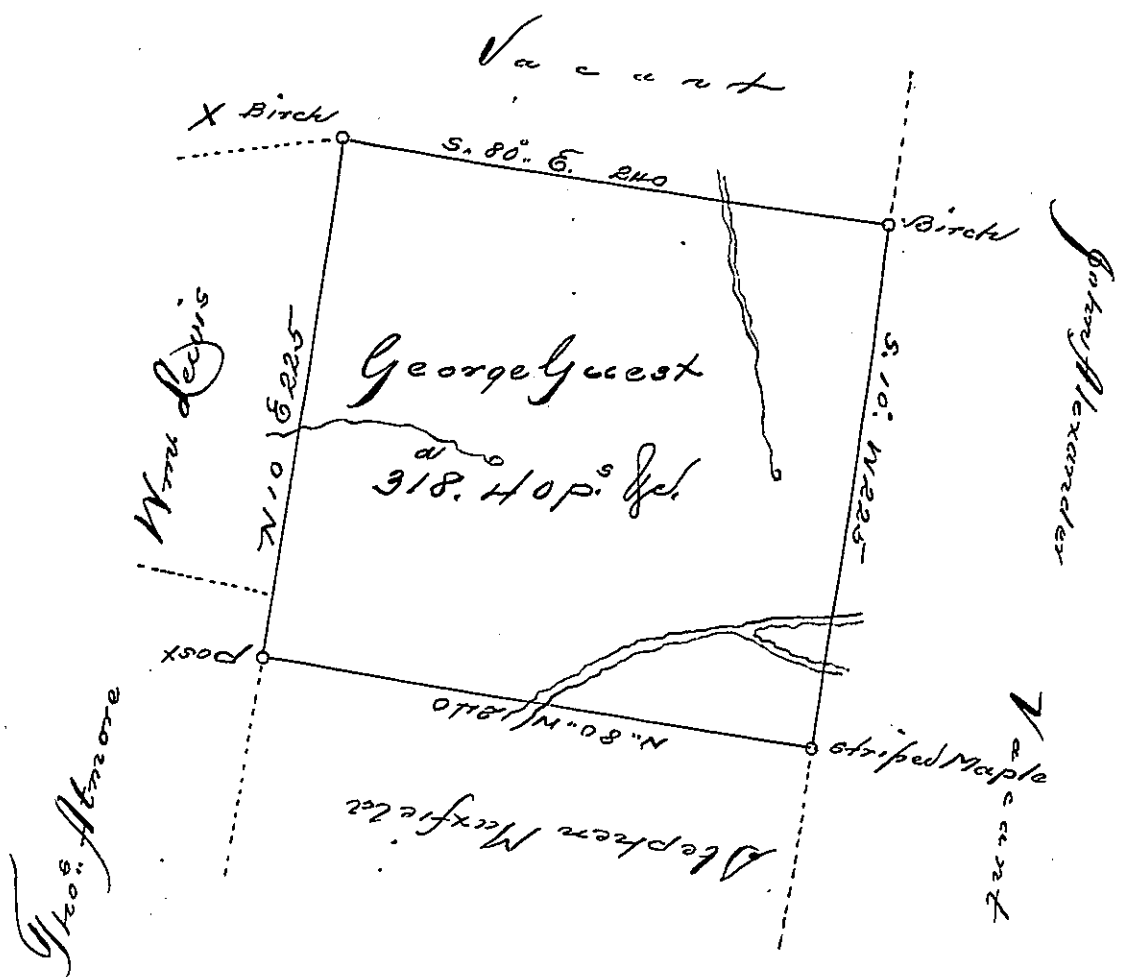 Vacant
X Birch
S. 80° E. 240
Birch
John Alexander
Wm Lewis
N 10 E 225
George Guest
318. a 40 p.s &c.
S. 10° W 225
Post
N. 80 W 240
Striped Maple
Vacant
Stephen Maxfield
Thos Atmore